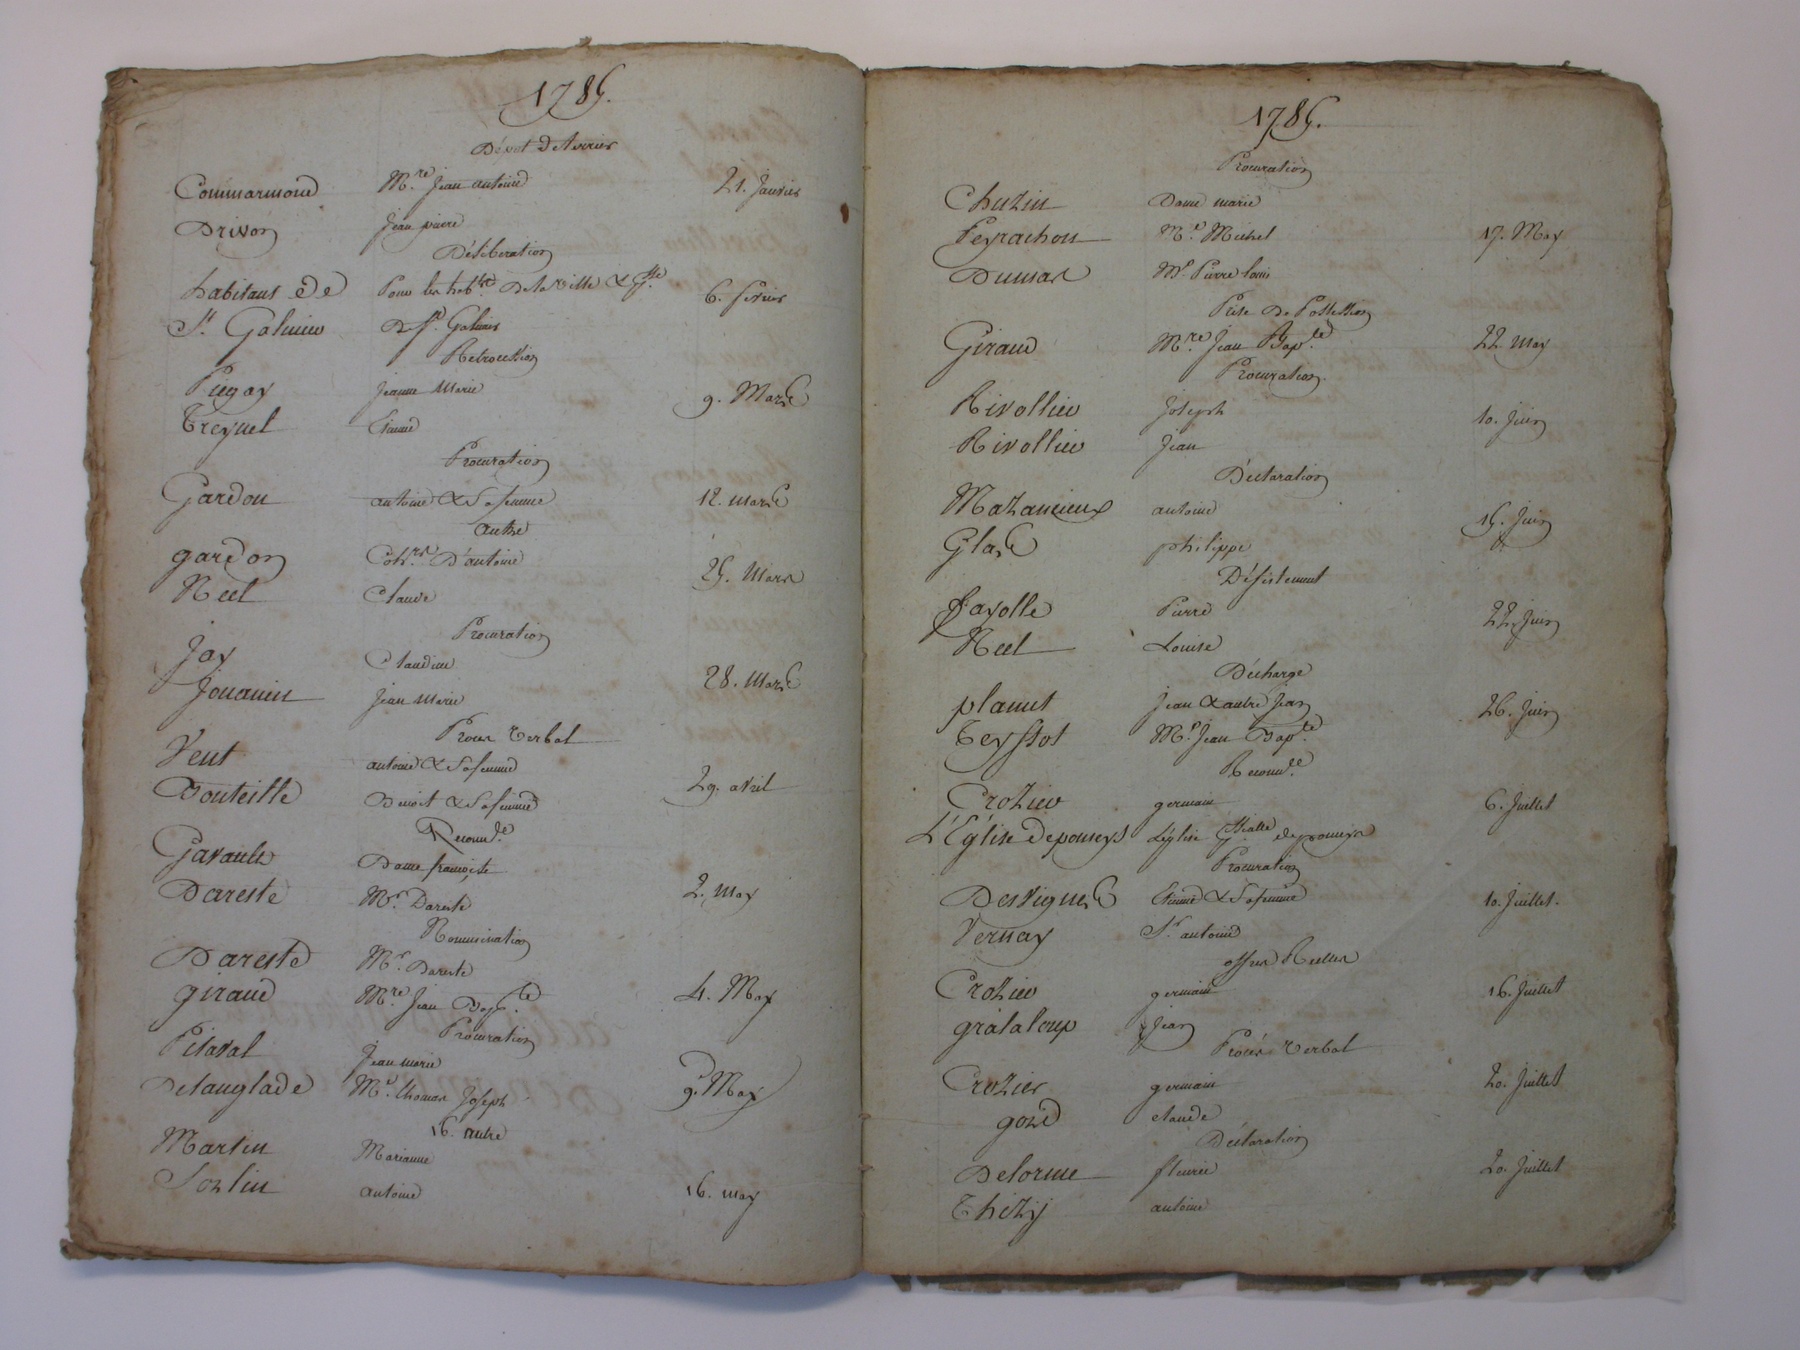 1785.
Dépot de terrier
Commarmond M.re Jean antoine 21. Janvier
Drivon Jean pierre
Déliberation
habitans de Pour les hab.ts De la ville & 6. fevrier
St. Galmier De St. Galmier
Retrocession
Pugay Jeanne Marie 9. Mars
Treynel Etienne
Procuration
Gardon antoine & Sa femme 12. mars
autre
gardon D'antoine 25. Mars
Néel Claude
Procuration
Jay Claudine 28. Mars
Jouanin Jean Marie
Proces Verbal
Vent antoine & Sa femme 29. avril
Bouteille Benoit & Sa femme
Reconn.ce
Gavault Dame françoise
Dareste Mr. Dareste 2. May
Nommination
Dareste Mr. Dareste
giraud M.re Jean Bap.te 4. May
Procuration
Pitaval Jean marie
Delanglade Mr. thomas Joseph 9. May
16. autre
Martin Marianne
antoine 16. may
1785.
Procuration
Chuzin Dame marie
Peyrachon Mr. Michel 17. May
Dumas Mr. Pierre louis
Prise De Possession
Giraud M.re Jean Bap.te 22. May
Procuration.
Rivollier Joseph 10. Juin
Rivollier Jean
Déclaration
Mazancieux antoine 15. Juin
Glas philippe
Désistement
fayolle Pierre 22. Juin
Néel Louise
Décharge
planut jean & autre jean 26. Juin
Teyssot Mr. Jean Bap.te
Reconn.ce
Crozier germain 6. Juillet
L'Église de pomeys L'église de pomeys
Procuration
Desvignes Etienne & Sa femme 10. Juillet.
Vernay Sr. antoine
offres Réelles
Crozier germain 16. Juillet
grataloup Jean
Procés Verbal
Crozier germain 20. Juillet
gond claude
Déclaration
Delorme fleurie 20. Juillet
Thizy antoine